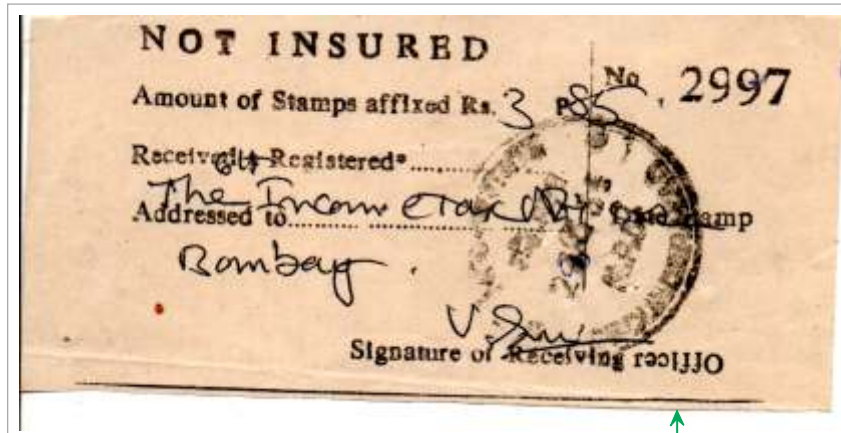 NOT INSURED
No. 2997
Amount of Stamps affixed Rs. 3 P. 85
Received a Registered*
Addressed to The Income Tax Date Stamp
Bombay.
Signature of Receiving Officer